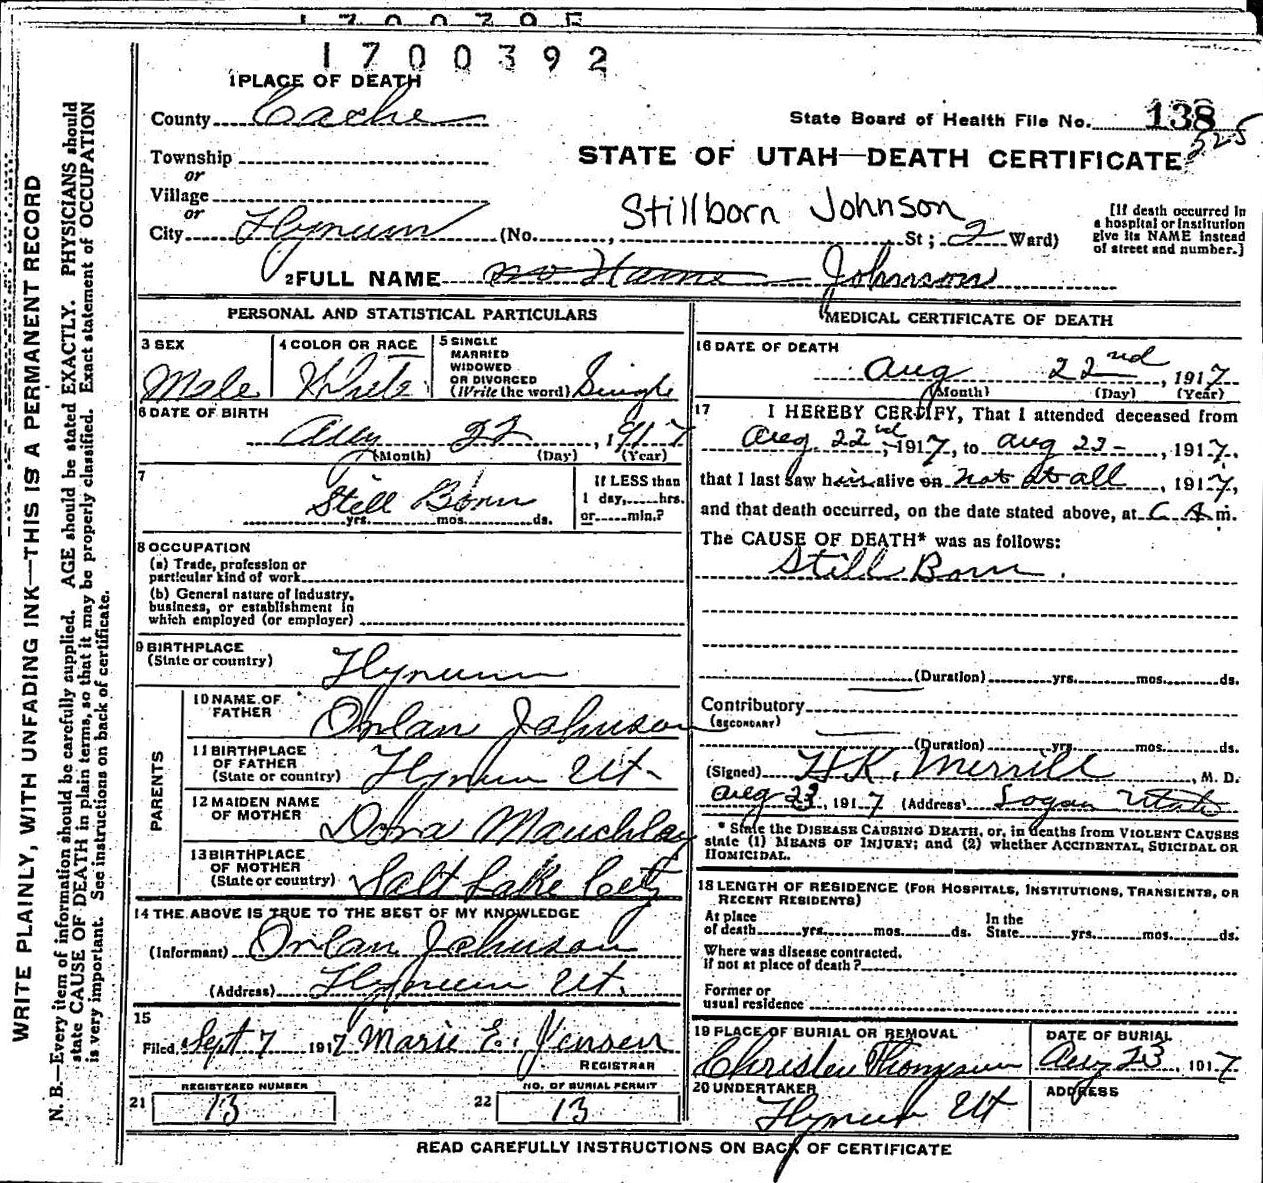 1700392
1 PLACE OF DEATH
County Cache
State Board of Health File No. 138
525
Township
STATE OF UTAH—DEATH CERTIFICATE
or
Village
or
Stillborn Johnson
City Hyrum (No. , St; 2 Ward)
[If death occurred in
a hospital or institution
give its NAME instead
of street and number.]
2 FULL NAME no Name Johnson
PERSONAL AND STATISTICAL PARTICULARS
3 SEX
Male
4 COLOR OR RACE
White
5 SINGLE
MARRIED
WIDOWED
OR DIVORCED
(Write the word) Single
6 DATE OF BIRTH
Aug 22, 1917
(Month) (Day) (Year)
7
Still Born
yrs. mos. ds.
If LESS than
1 day, hrs.
or min.?
8 OCCUPATION
(a) Trade, profession or
particular kind of work
(b) General nature of Industry,
business, or establishment in
which employed (or employer)
9 BIRTHPLACE
(State or country) Hyrum
PARENTS
10 NAME OF
FATHER Orlan Johnson
11 BIRTHPLACE
OF FATHER
(State or country) Hyrum Ut.
12 MAIDEN NAME
OF MOTHER Dora
13 BIRTHPLACE
OF MOTHER
(State or country) Salt Lake City
14 THE ABOVE IS TRUE TO THE BEST OF MY KNOWLEDGE
(Informant) Orlan Johnson
(Address) Hyrum Ut.
15
Filed Sept 7 1917 Marie E. Jensen
REGISTRAR
REGISTERED NUMBER
21 13
NO. OF BURIAL PERMIT
22 13
MEDICAL CERTIFICATE OF DEATH
16 DATE OF DEATH
Aug 22nd, 1917
(Month) (Day) (Year)
17 I HEREBY CERTIFY, That I attended deceased from
Aug. 22nd, 1917, to Aug 22-, 1917,
that I last saw him alive on not at all, 1917,
and that death occurred, on the date stated above, at A m.
The CAUSE OF DEATH* was as follows:
Still Born.
(Duration) yrs. mos. ds.
Contributory
(SECONDARY)
(Duration) yrs. mos. ds.
(Signed) H.K. Merrill, M. D.
Aug 23, 1917 (Address) Logan Utah
* State the DISEASE CAUSING DEATH, or, in deaths from VIOLENT CAUSES
state (1) MEANS OF INJURY; and (2) whether ACCIDENTAL, SUICIDAL OR
HOMICIDAL.
18 LENGTH OF RESIDENCE (FOR HOSPITALS, INSTITUTIONS, TRANSIENTS, OR
RECENT RESIDENTS)
At place
of death yrs. mos. ds.
In the
State yrs. mos. ds.
Where was disease contracted.
If not at place of death?
Former or
usual residence
19 PLACE OF BURIAL OR REMOVAL
DATE OF BURIAL
Aug 23, 1917
20 UNDERTAKER
Hyrum Ut
ADDRESS
READ CAREFULLY INSTRUCTIONS ON BACK OF CERTIFICATE
WRITE PLAINLY, WITH UNFADING INK—THIS IS A PERMANENT RECORD
N. B.—Every item of information should be carefully supplied. AGE should be stated EXACTLY. PHYSICIANS should
state CAUSE OF DEATH in plain terms, so that it may be properly classified. Exact statement of OCCUPATION
is very important. See instructions on back of certificate.